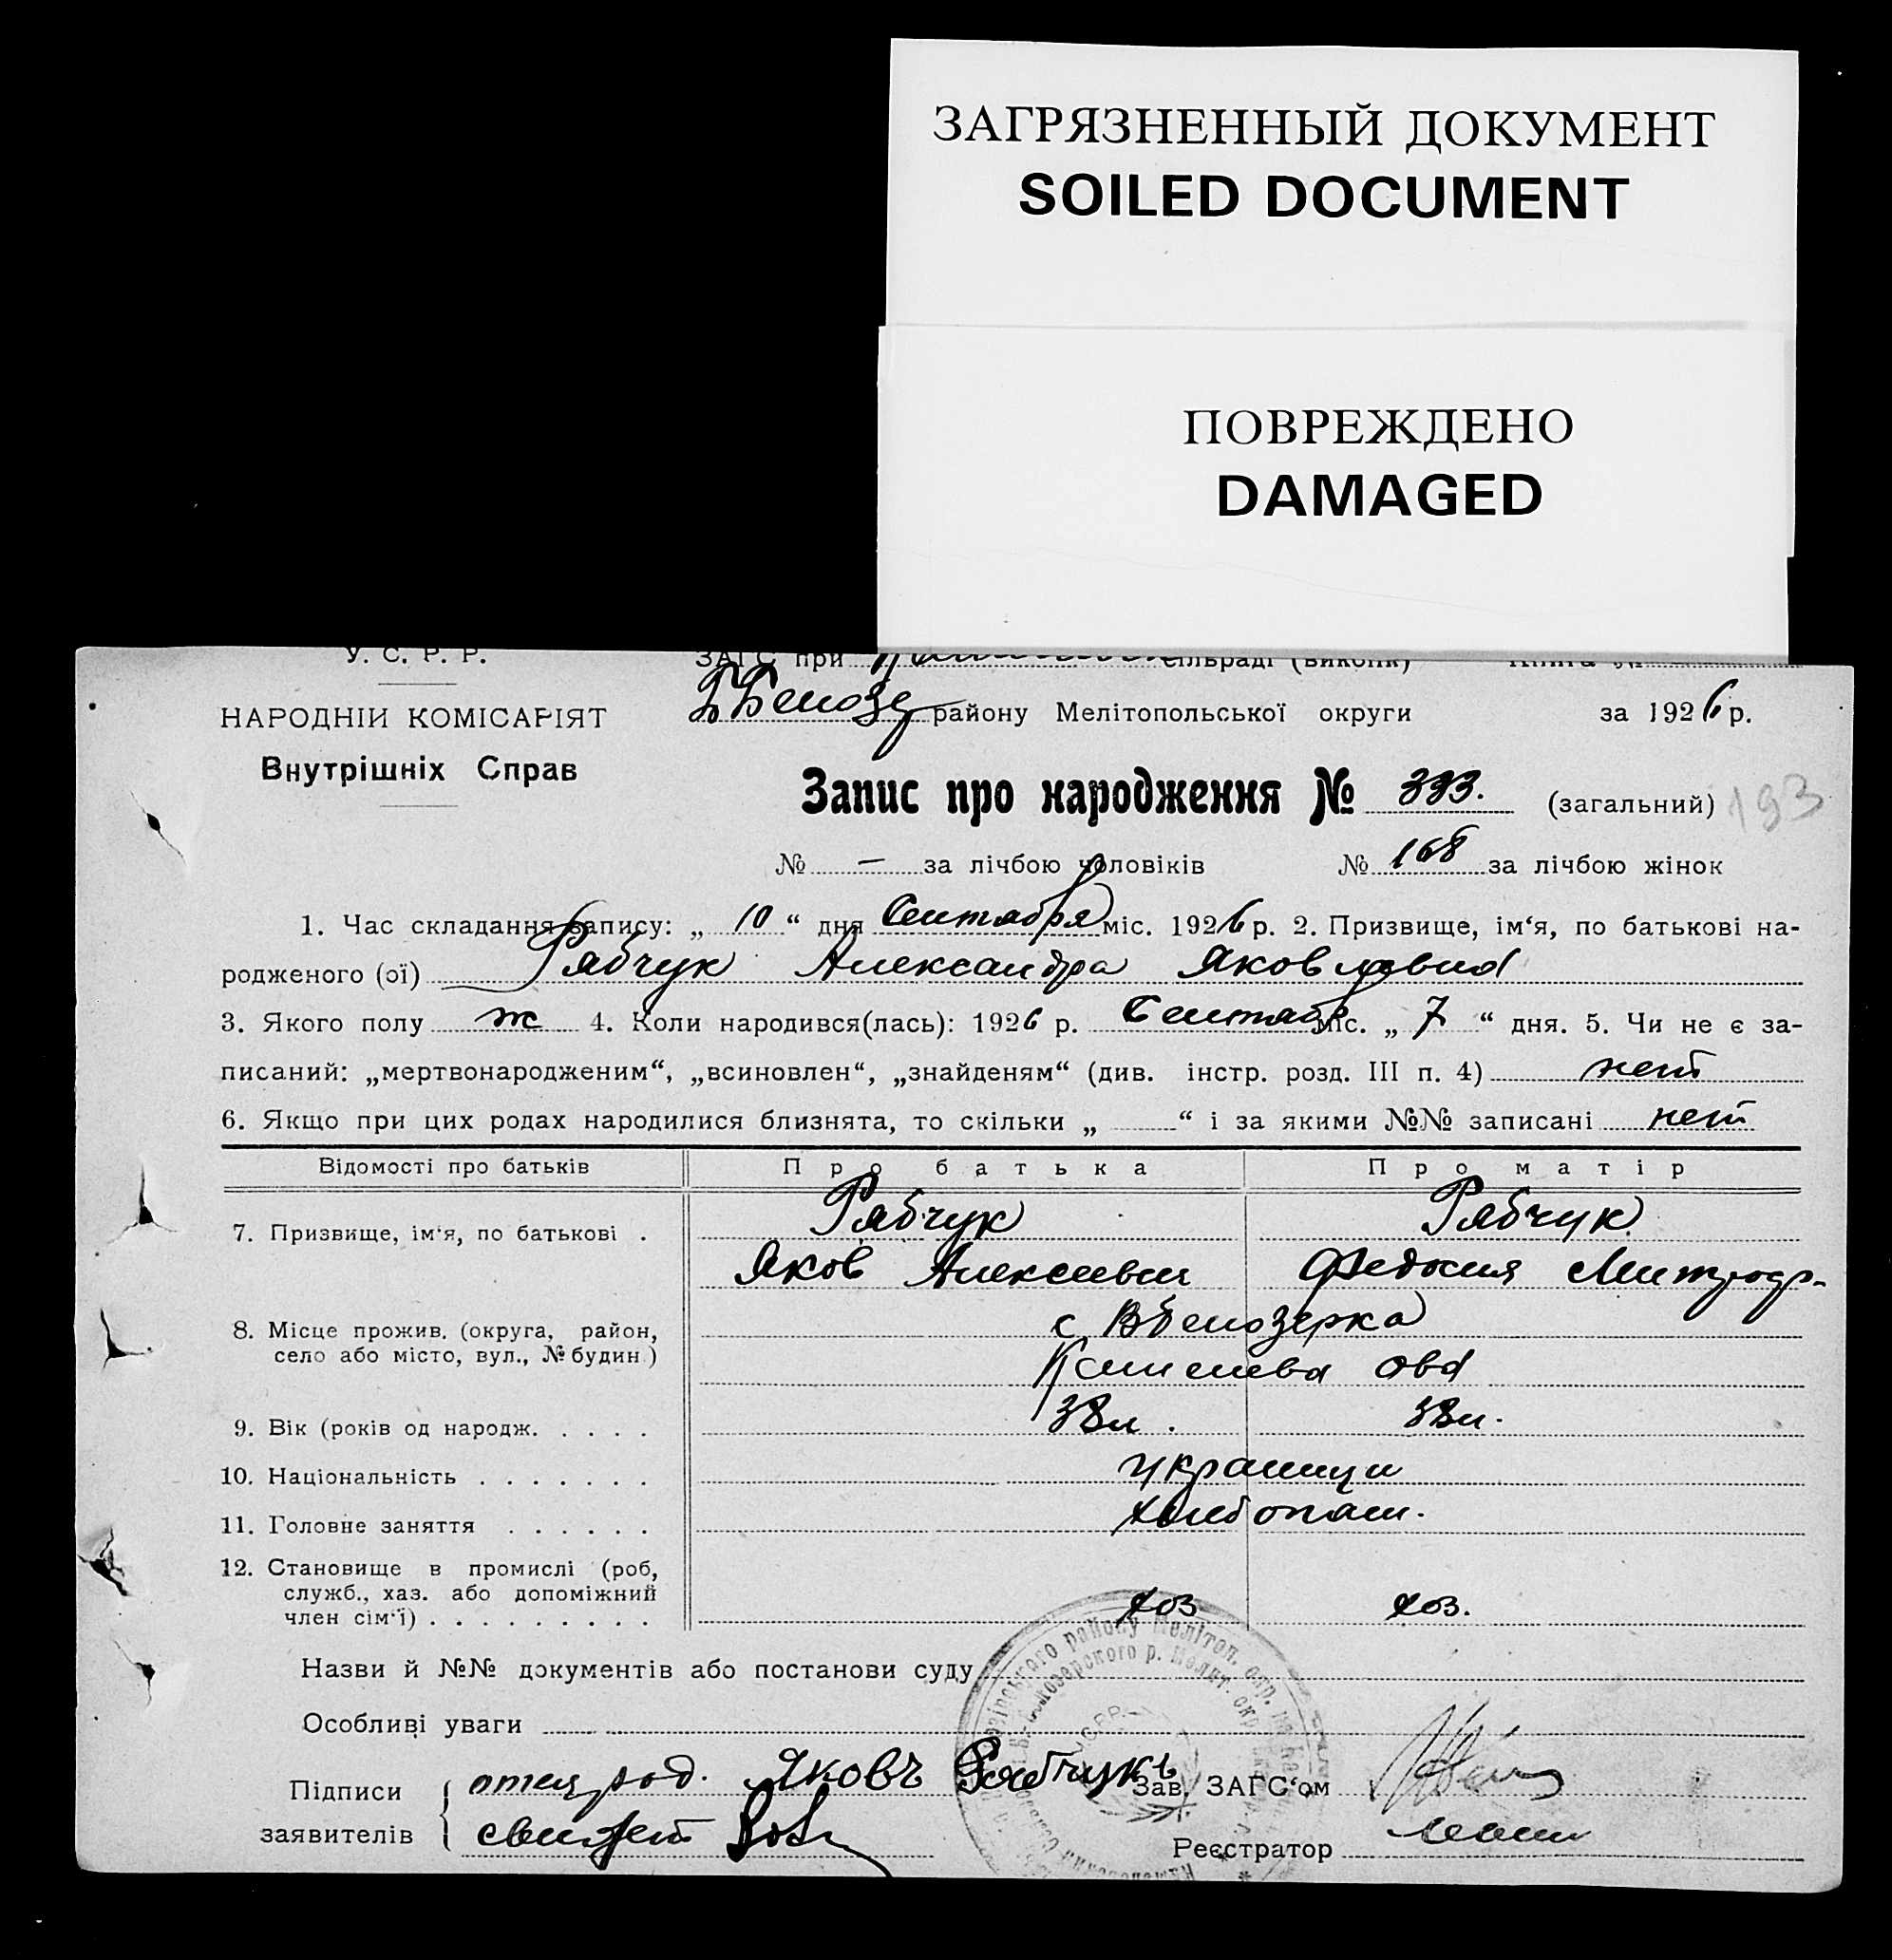 ЗАГРЯЗНЕННЫЙ ДОКУМЕНТ
SOILED DOCUMENT
ПОВРЕЖДЕНО
DAMAGED
У. С. Р. Р.
ЗАГС при сільраді (виконк)
НАРОДНІЙ КОМІСАРІЯТ
Внутрішніх Справ
Б Белозер району Мелітопольської округи за 1926 р.
Запис про народження № 393. (загальний) 193
№ — за лічбою чоловіків № 168 за лічбою жінок
1. Час складання запису: „ 10 “ дня Сентября міс. 1926 р. 2. Призвище, ім‘я, по батькові на-
родженого (ої) Рябчук Александра Яковлевна
3. Якого полу ж 4. Коли народився(лась): 1926 р. Сентябр міс. „ 7 “ дня. 5. Чи не є за-
писаний: „мертвонародженим“, „всиновлен“, „знайденям“ (див. інстр. розд. III п. 4) нет
6. Якщо при цих родах народилися близнята, то скільки „ “ і за якими №№ записані нет
Відомості про батьків Про батька Про матір
7. Призвище, ім‘я, по батькові . Рябчук Рябчук
Яков Алексеевич Федосия Митрофр-
8. Місце прожив. (округа, район, с Вбелозерка
село або місто, вул., № будин.)
9. Вік (років од народж. . . . . 38л. 38л.
10. Національність . . . . . . . украинци
11. Головне заняття . . . . . . хлебопаш.
12. Становище в промислі (роб,
служб., хаз. або допоміжний
член сім‘ї) . . . . . . . . . хоз хоз.
Назви й №№ документів або постанови суду
Особливі уваги
Підписи отец род. Яковъ Рябчукъ Зав. ЗАГС‘ом
заявителів свидет
Реєстратор